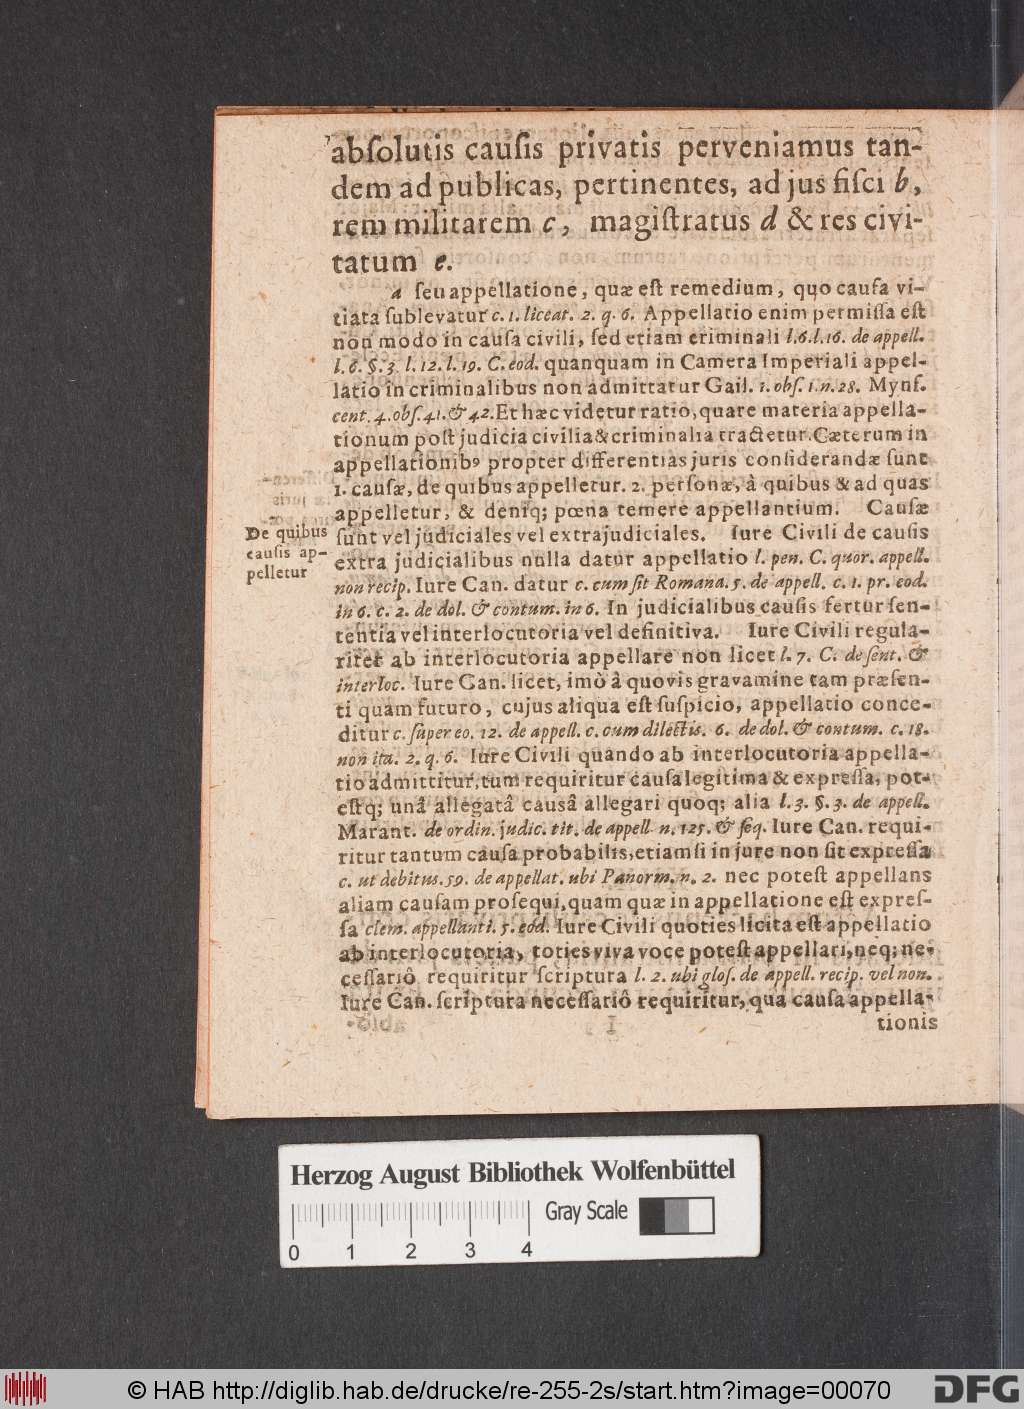 abſolutis cauſis privatis perveniamus tan-
dem ad publicas, pertinentes, ad jus fiſci b,
rem militarem c, magiſtratus d & res civi-
tatum e.
a ſeu appellatione, quæ eſt remedium, quo cauſa vi-
tiata ſublevatur c. 1. liceat. 2. q. 6. Appellatio enim permiſſa eſt
non modo in cauſa civili, ſed etiam criminali l.6.l.16. de appell.
l. 6. §. 3. l. 12. l. 19. C. eod. quanquam in Camera Imperiali appel-
latio in criminalibus non admittatur Gail. 1. obſ. 1. n. 28. Mynſ.
cent. 4. obſ. 41. & 42. Et hæc videtur ratio, quare materia appella-
tionum poſt judicia civilia & criminalia tractetur. Cæterum in
appellationibꝰ propter differentias juris conſiderandæ ſunt
1. cauſæ, de quibus appelletur. 2. perſonæ, à quibus & ad quas
appelletur, & deniq; pœna temere appellantium. Cauſæ
De quibus
cauſis ap-
pelletur
ſunt vel judiciales vel extrajudiciales. Iure Civili de cauſis
extra judicialibus nulla datur appellatio l. pen. C. quor. appell.
non recip. Iure Can. datur c. cum ſit Romana. 5. de appell. c. 1. pr. eod.
in 6. c. 2. de dol. & contum. in 6. In judicialibus cauſis fertur ſen-
tentia vel interlocutoria vel definitiva. Iure Civili regula-
riter ab interlocutoria appellare non licet l. 7. C. de ſent. &
interloc. Iure Can. licet, imò à quovis gravamine tam præſen-
ti quam futuro, cujus aliqua eſt ſuſpicio, appellatio conce-
ditur c. ſuper eo. 12. de appell. c. cum dilectis. 6. de dol. & contum. c. 18.
non ita. 2. q. 6. Iure Civili quando ab interlocutoria appella-
tio admittitur, tum requiritur cauſa legitima & expreſſa, pot-
eſtq; unâ allegatâ causâ allegari quoq; alia l. 3. §. 3. de appell.
Marant. de ordin. judic. tit. de appell. n. 125. & ſeq. Iure Can. requi-
ritur tantum cauſa probabilis, etiamſi in jure non ſit expreſſa
c. ut debitus. 59. de appellat. ubi Panorm. n. 2. nec poteſt appellans
aliam cauſam proſequi, quam quæ in appellatione eſt expreſ-
ſa clem. appellanti. 5. eod. Iure Civili quoties licita eſt appellatio
ab interlocutoria, toties viva voce poteſt appellari, neq; ne-
ceſſariô requiritur ſcriptura l. 2. ubi gloſ. de appell. recip. vel non.
Iure Can. ſcriptura neceſſariô requiritur, qua cauſa appella-
tionis
Herzog August Bibliothek Wolfenbüttel
Gray Scale
0 1 2 3 4
© HAB http://diglib.hab.de/drucke/re-255-2s/start.htm?image=00070
DFG